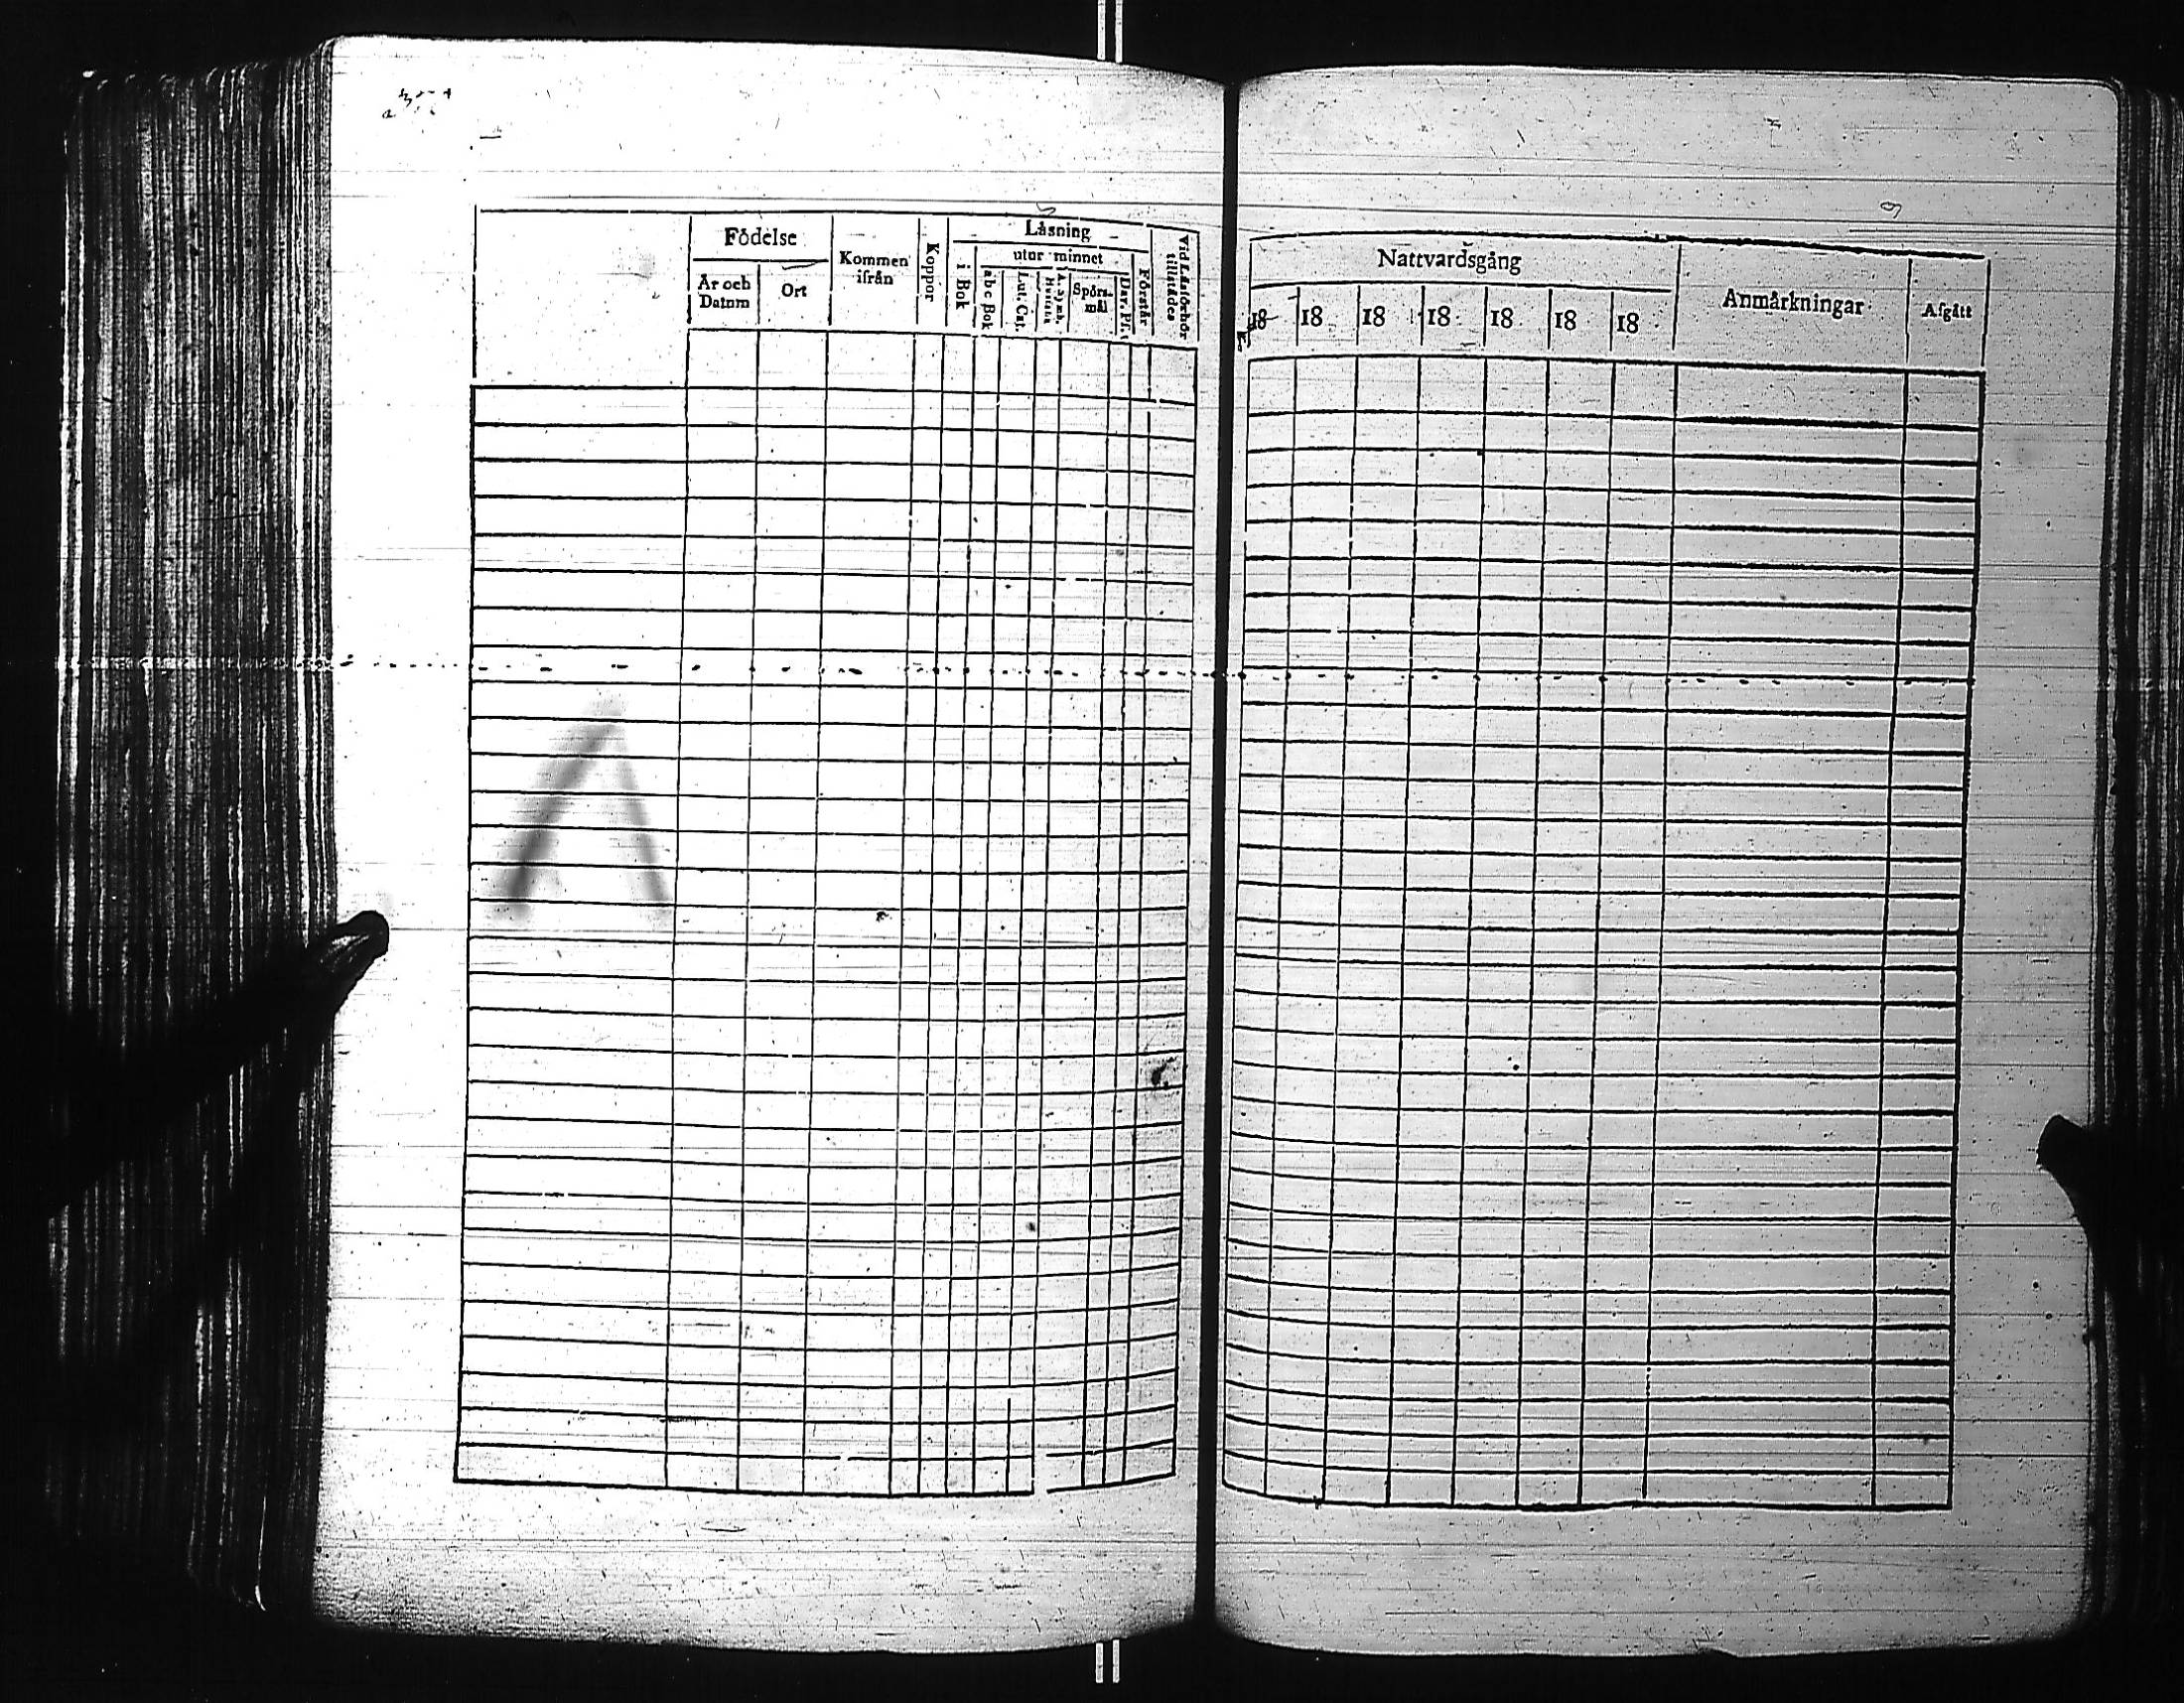 Födelse
År och Datum
Ort
Kommen ifrån
Koppor
Läsning
i Bok
utur minnet
abc Bok
Lut. Cat.
Spörsmål
Dav. Ps.
Förstår
Vid Läsförhör tillstädes
Nattvardsgång
18 18 18 18 18 18 18
Anmärkningar
Afgått